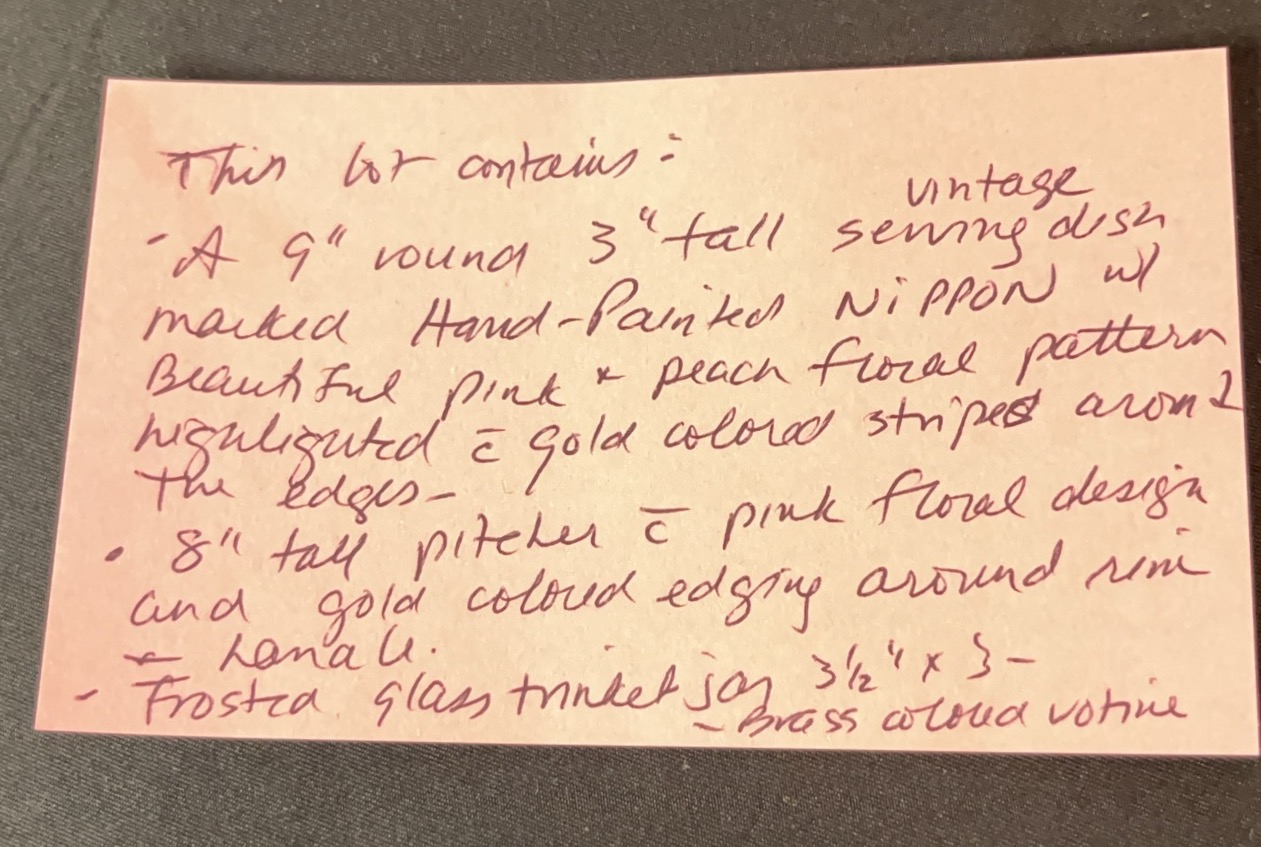 This lot contains:
vintage
- A 9" round 3" tall serving dish
marked Hand-Painted NIPPON w/
Beautiful pink & peach floral pattern
highlighted c̄ gold colored stripes around
the edges-
• 8" tall pitcher c̄ pink floral design
and gold colored edging around rim
+ handle.
- Frosted glass trinket jar 3½" x 3-
- Brass colored votive